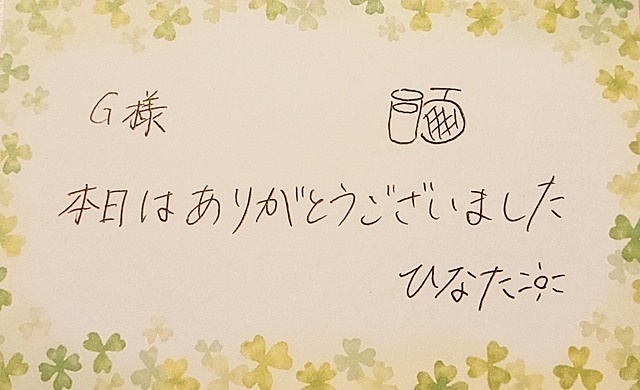 G様
本日はありがとうございました
ひなた